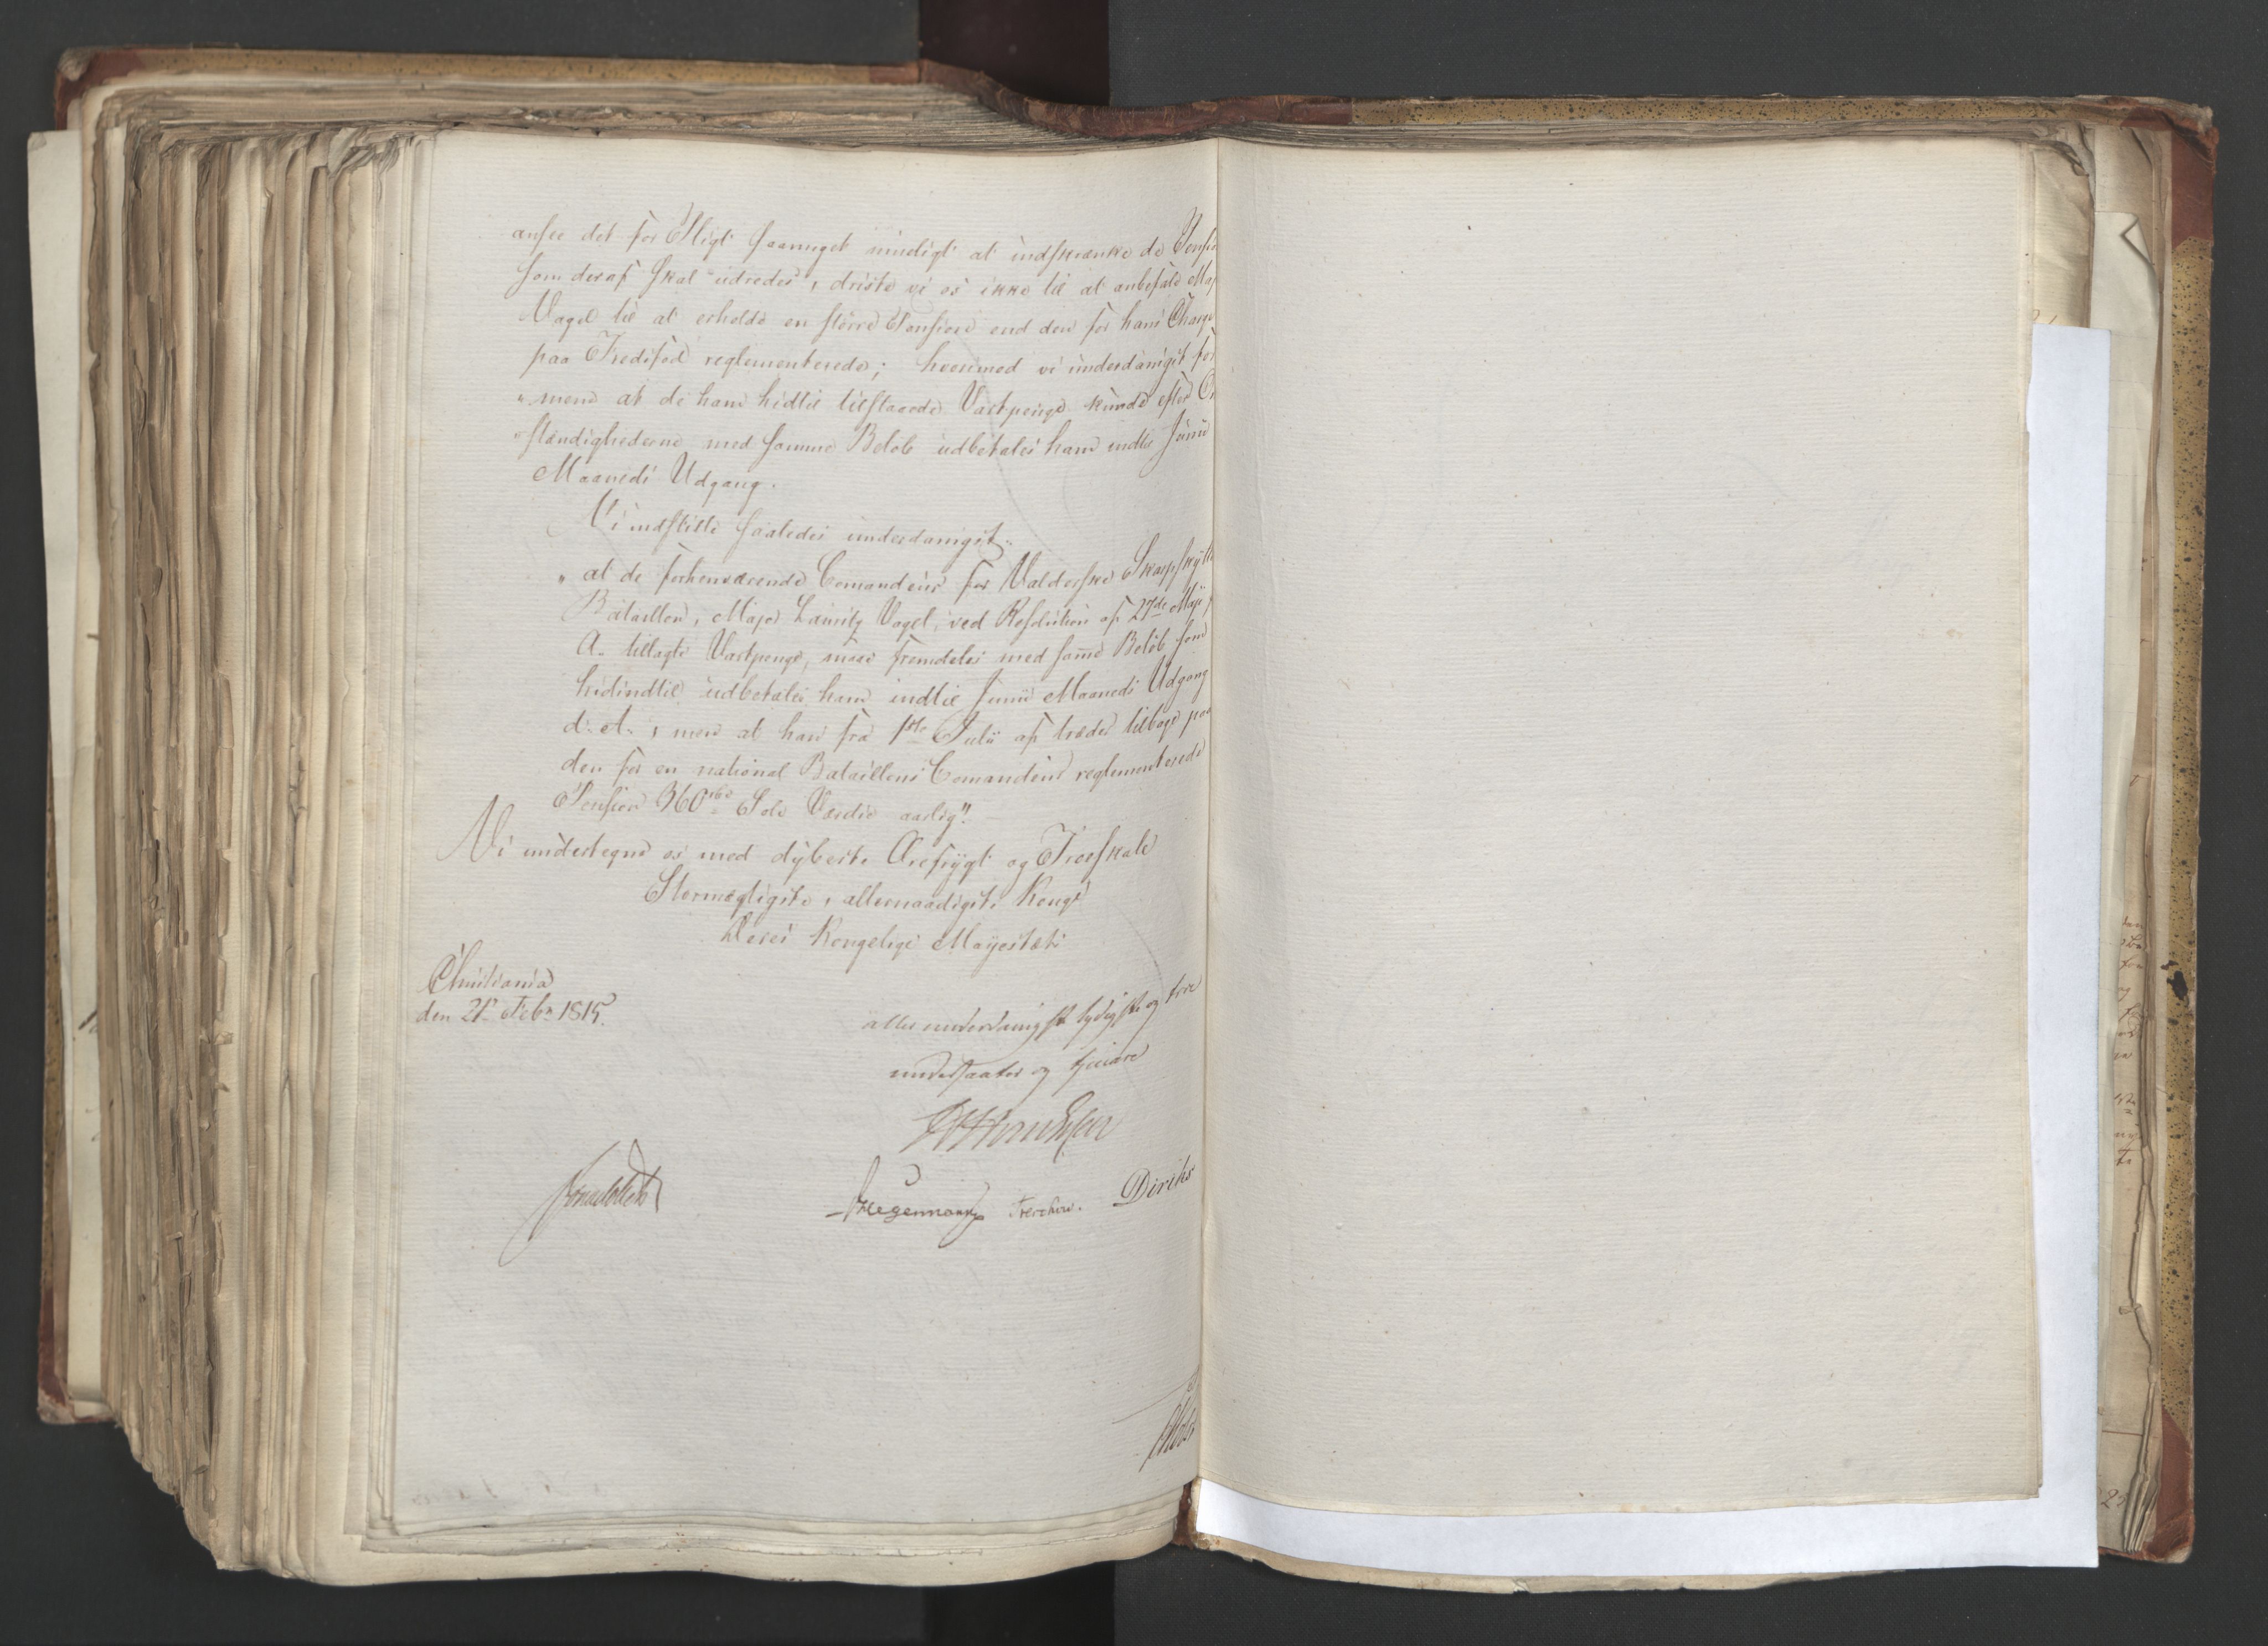 ansee det for Pligt saameget mueligt at indskrænke de Pensio
som deraf skal udredes, driste vi os ikke til at anbefale Maj
Vogel til at erholde en større Pension end den for hans Charge
paa Fredsfod reglementerede; hvorimod vi underdanigst for
"mene at de ham hidtil tilstaaede Vartpenge kunde efter O
"stændighederne med samme Beløb udbetales ham indtil Junii
Maaneds Udgang.
Vi indstille saaledes underdanigst
"at de forhenværende Comandeur for Valderske Skarpskytte
Batallion, Major Lauritz Vogel, ved Resolution af 27de Maji f
A. tillagte Vartpenge, maae fremdeles med samme Beløb som
hidindtil udbetales ham indtil Junii Maaneds Udgang
d. A., men at han fra 1ste Julii af træder tilbage paa
den for en national Bataillons Comandeur reglementerede
Pension 360 rbd Sølv Værdie aarlig".
Vi undertegne os med dybeste Ærefrygt og Troeskab
Stormægtigste, allernaadigste Konge
Deres Kongelige Mayestæts
Christiania
den 21 Feb. 1815.
allerunderdanigste lydigste og troe
undersaatter og tjenere
Sommerhielm
Hegermann Treschow. Diriks